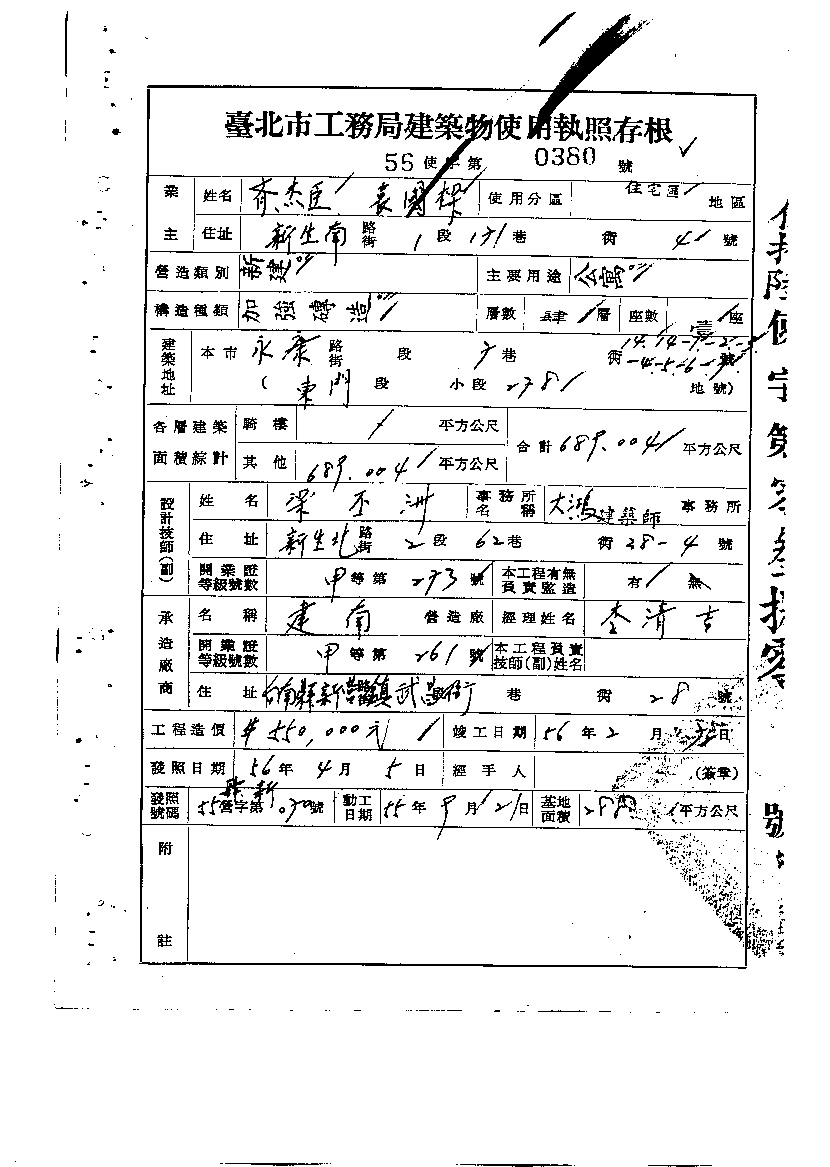 臺北市工務局建築物使用執照存根
56使字第 0380 號
業主 姓名 齊杰臣 袁國樑 使用分區 住宅區 地區
住址 新生南路街 1段 171巷 衖 4 號
營造類別 新建 主要用途 公寓
構造種類 加強磚造 層數 肆層 座數 壹座
建築地址 本市 永康路街 段 7巷 衖 號
(東門段 小段 278 地號)
各層建築面積綜計 騎樓 平方公尺 合計 689.004 平方公尺
其他 689.004 平方公尺
設計技師(副) 姓名 梁丕洲 事務所名稱 大鴻建築師事務所
住址 新生北路街 2段 62巷 衖 38-4 號
開業證等級號數 甲等第 273 號 本工程有無負責監造 有 無
承造廠商 名稱 建南 營造廠 經理姓名 李清吉
開業證等級號數 甲等第 261 號 本工程負責技師(副)姓名
住址 台南縣新營鎮武昌街 巷 衖 28 號
工程造價 $550,000元 竣工日期 56年2月 日
發照日期 56年4月5日 經手人 (簽章)
發照號碼 55營字第 號 動工日期 55年9月21日 基地面積 平方公尺
附註